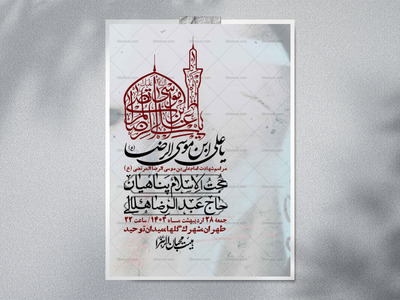 یا علی ابن موسی الرضا (ع)
مراسم شهادت امام علی بن موسی الرضا المرتضی (ع)
حجت الاسلام پناهیان
حاج عبدالرضا هلالی
جمعه ۲۸ اردیبهشت ماه ۱۴۰۳ / ساعت ۲۲
طهران شهرک گلها میدان توحید